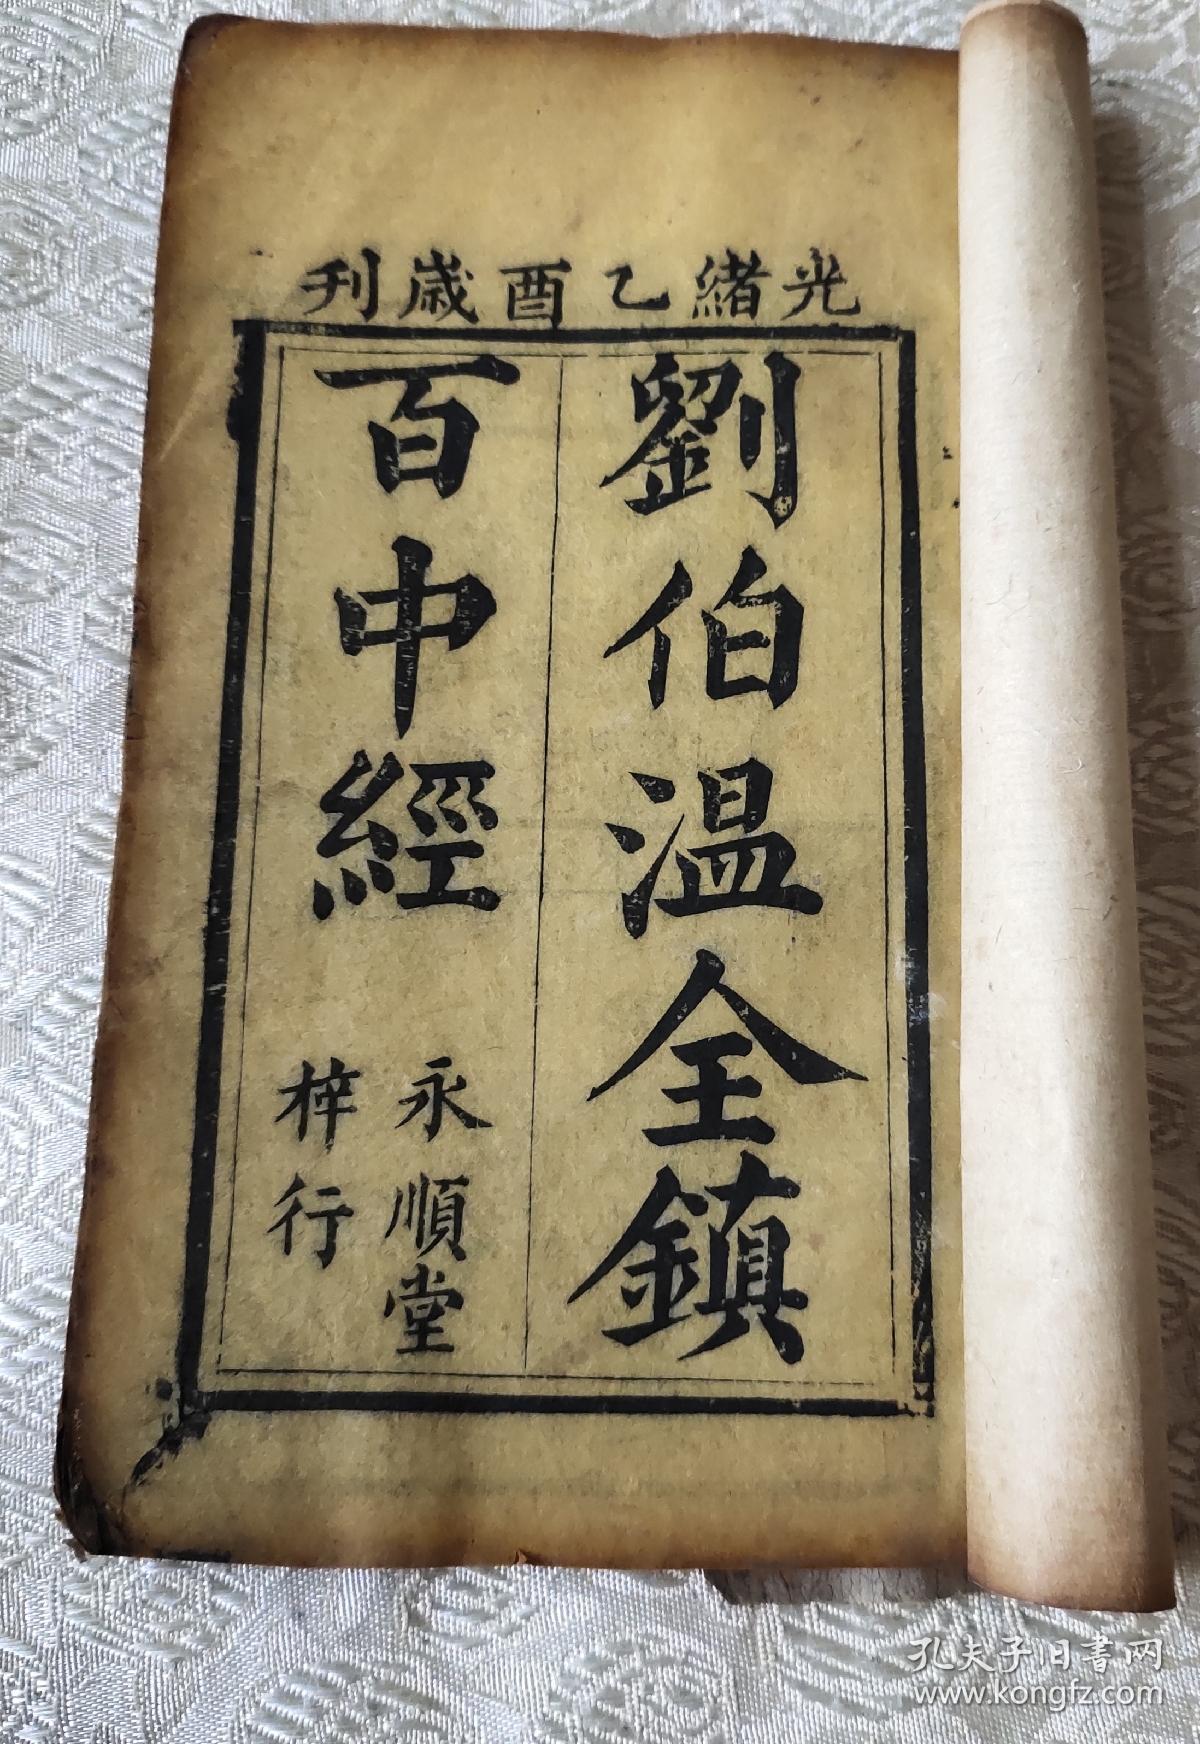 光緒乙酉歲刊
劉伯温全鎮
百中經
永順堂
梓行
孔夫子旧书网
www.kongfz.com